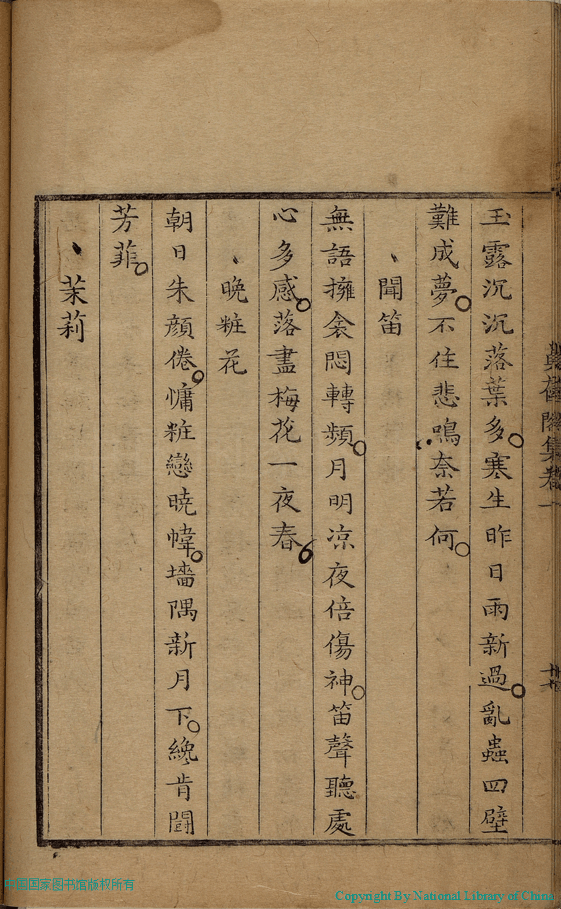 玉露沉沉落葉多寒生昨日雨新過亂蟲四壁
難成夢不住悲鳴奈若何
聞笛
無語擁衾悶轉頻月明凉夜倍傷神笛聲聽處
心多感落盡梅花一夜春
晚粧花
朝日朱顔倦慵粧戀曉幃墻隅新月下纔肯鬪
芳菲
茉莉
中国国家图书馆版权所有
Copyright By National Library of China